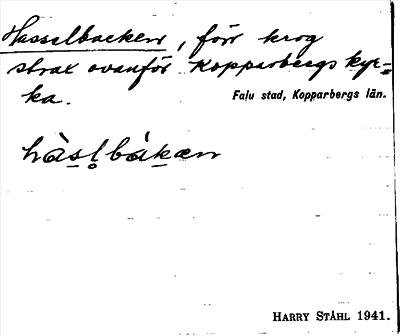 Hasselbacken, förr krog
strax ovanför Kopparbergs kyr=
ka.
Falu stad, Kopparbergs län.
hàsl̥bákæn
HARRY STÅHL 1941.